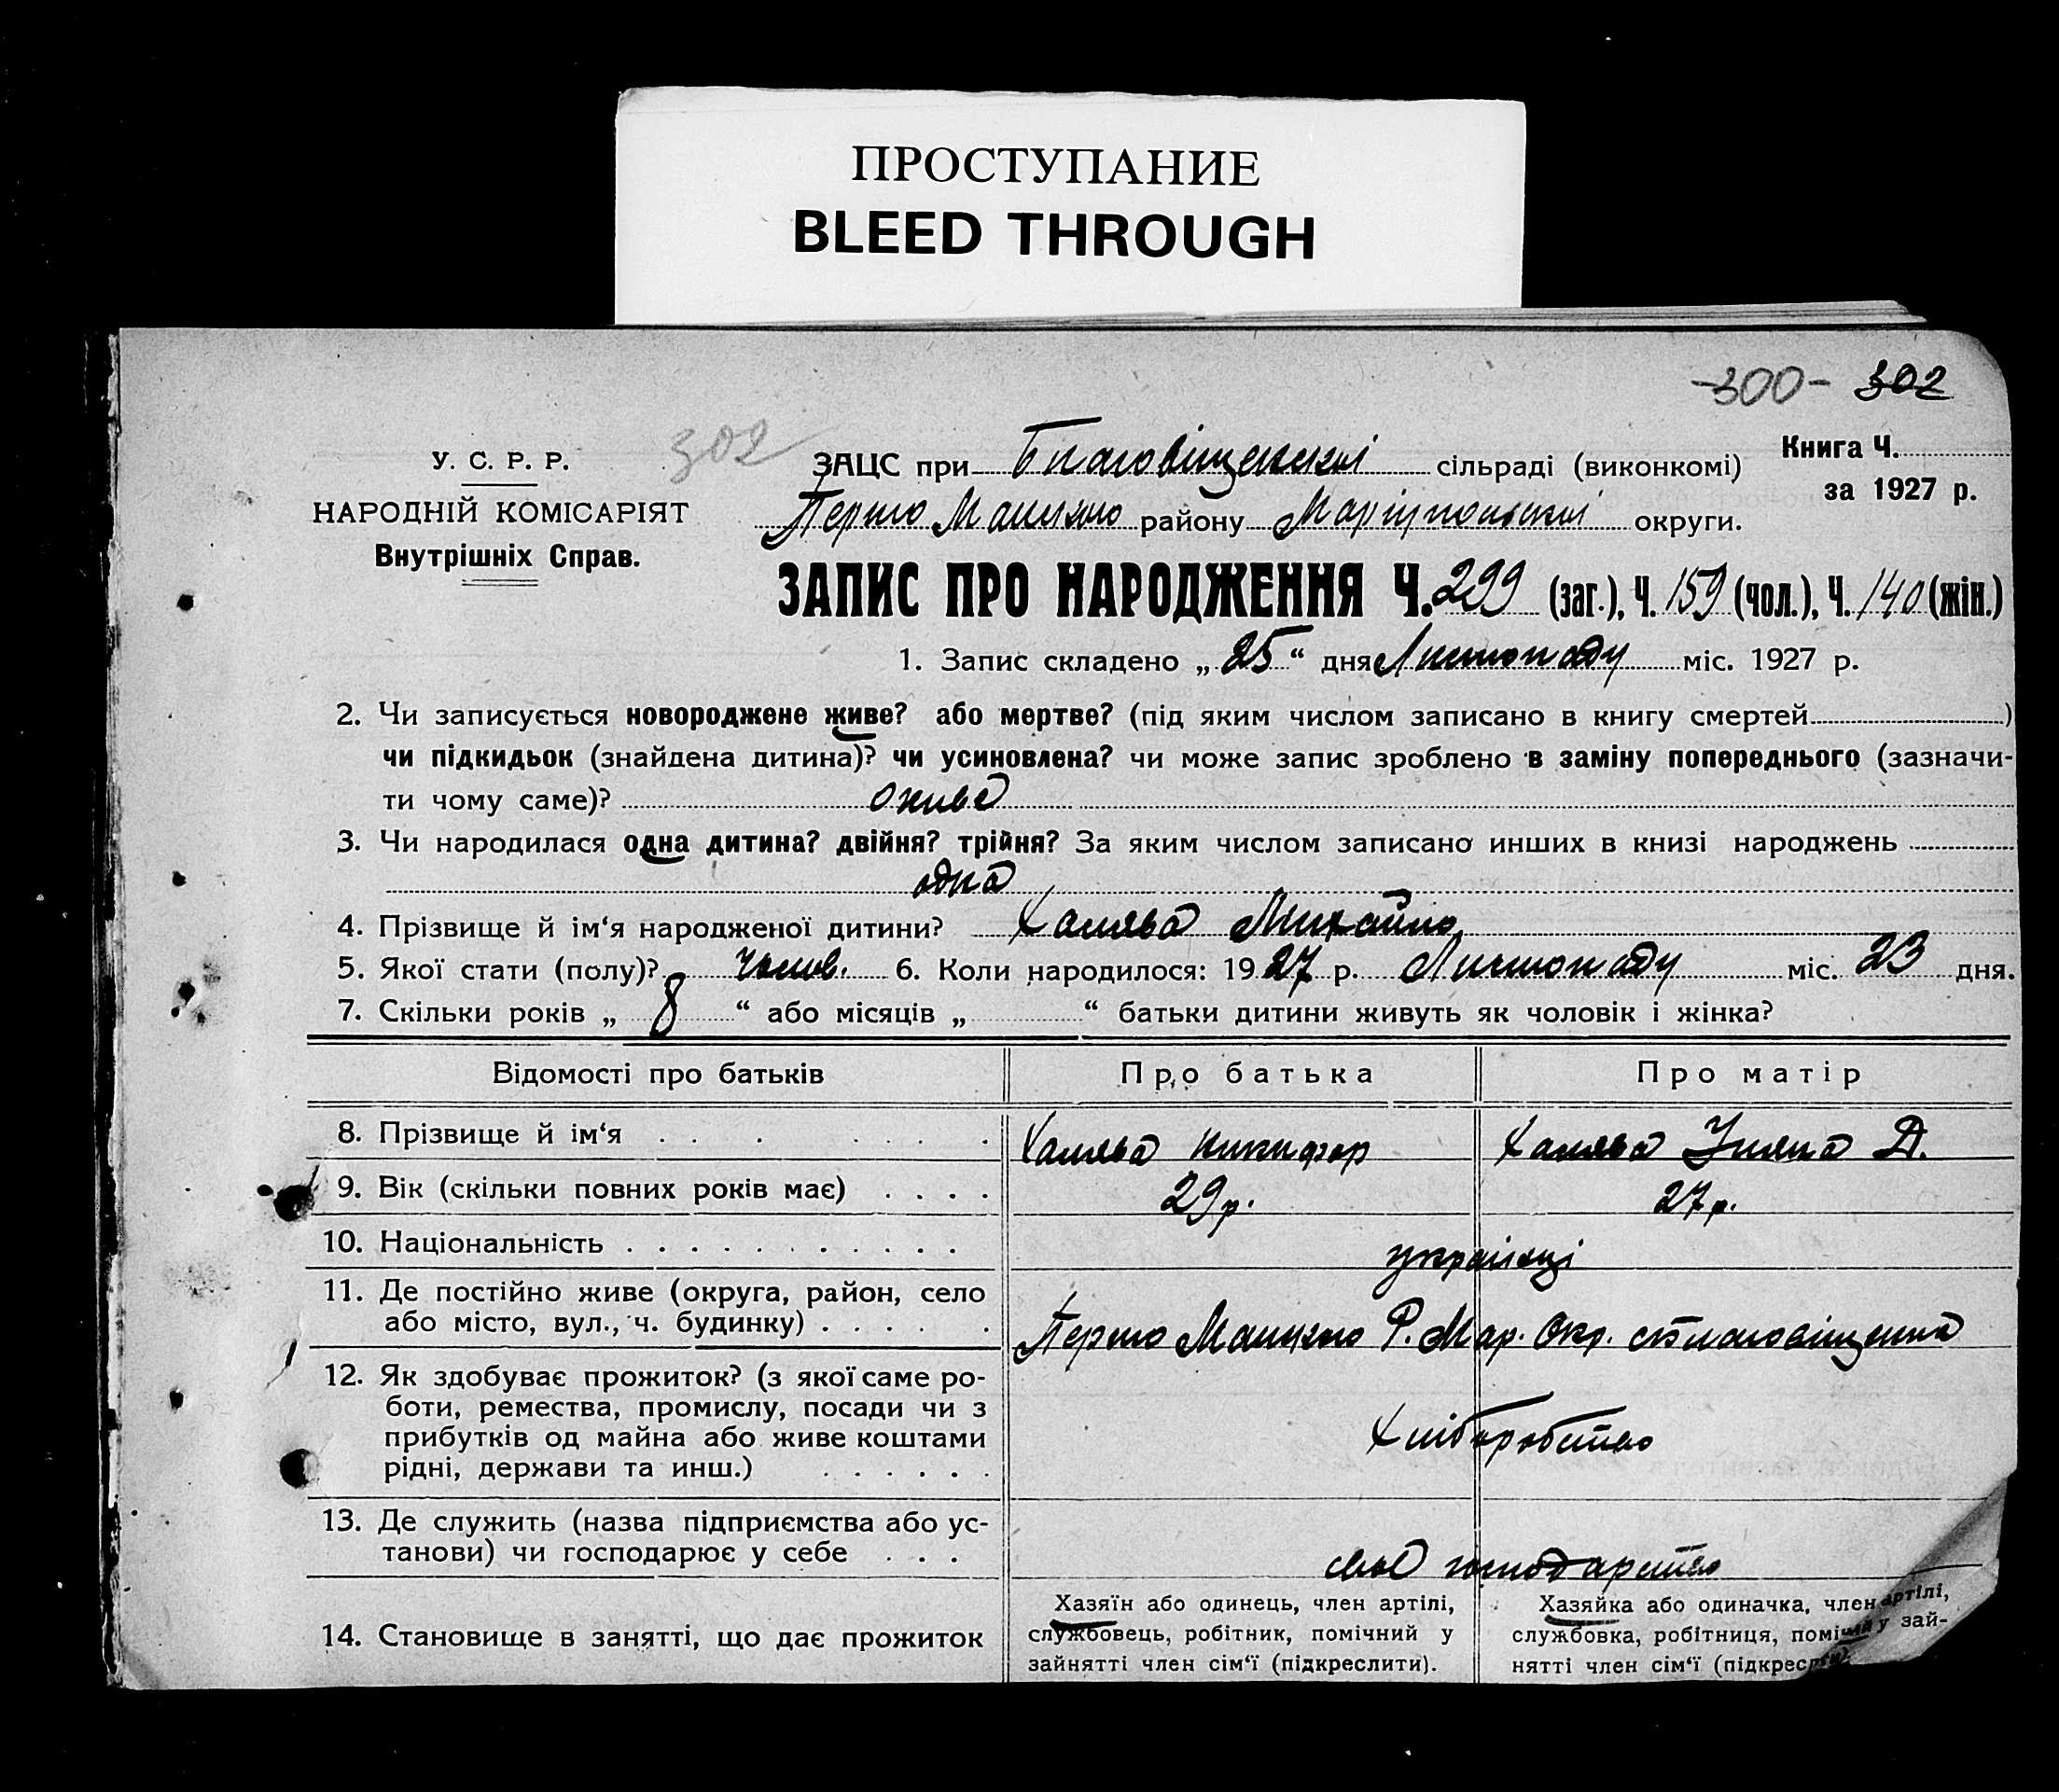 ПРОСТУПАНИЕ
BLEED THROUGH
-300- 302
302
Книга Ч.
за 1927 р.
У. С. Р. Р.
НАРОДНІЙ КОМІСАРІЯТ
Внутрішніх Справ.
ЗАЦС при Благовіщенській сільраді (виконкомі)
Першо Мачухого району Маріупольської округи.
ЗАПИС ПРО НАРОДЖЕННЯ Ч. 299 (заг.), Ч. 159 (чол.), Ч. 140 (жін.)
1. Запис складено „ 25 “ дня Листопаду міс. 1927 р.
2. Чи записується новороджене живе? або мертве? (під яким числом записано в книгу смертей )
чи підкидьок (знайдена дитина)? чи усиновлена? чи може запис зроблено в заміну попереднього (зазначи-
ти чому саме)? живе
3. Чи народилася одна дитина? двійня? трійня? За яким числом записано инших в книзі народжень
одна
4. Прізвище й ім‘я народженої дитини? Халява Михайло
5. Якої стати (полу)? чолов. 6. Коли народилося: 1927 р. Листопаду міс. 23 дня.
7. Скільки років „ 8 “ або місяців „ “ батьки дитини живуть як чоловік і жінка?
Відомості про батьків Про батька Про матір
8. Прізвище й ім‘я Халява Никифор Халява Уляна Д.
9. Вік (скільки повних років має) 29 р. 27 р.
10. Національність українці
11. Де постійно живе (округа, район, село
або місто, вул., ч. будинку) Першо Р. Мар. Окр. с Благовіщенка
12. Як здобуває прожиток? (з якої саме ро-
боти, ремества, промислу, посади чи з
прибутків од майна або живе коштами
рідні, держави та инш.) Хліборобство
13. Де служить (назва підприємства або ус-
танови) чи господарює у себе своє господарство
14. Становище в занятті, що дає прожиток
Хазяїн або одинець, член артілі,
службовець, робітник, помічний у
зайнятті член сім‘ї (підкреслити).
Хазяйка або одиначка, член артілі,
службовка, робітниця, помічн у зай-
нятті член сім‘ї (підкреслити)